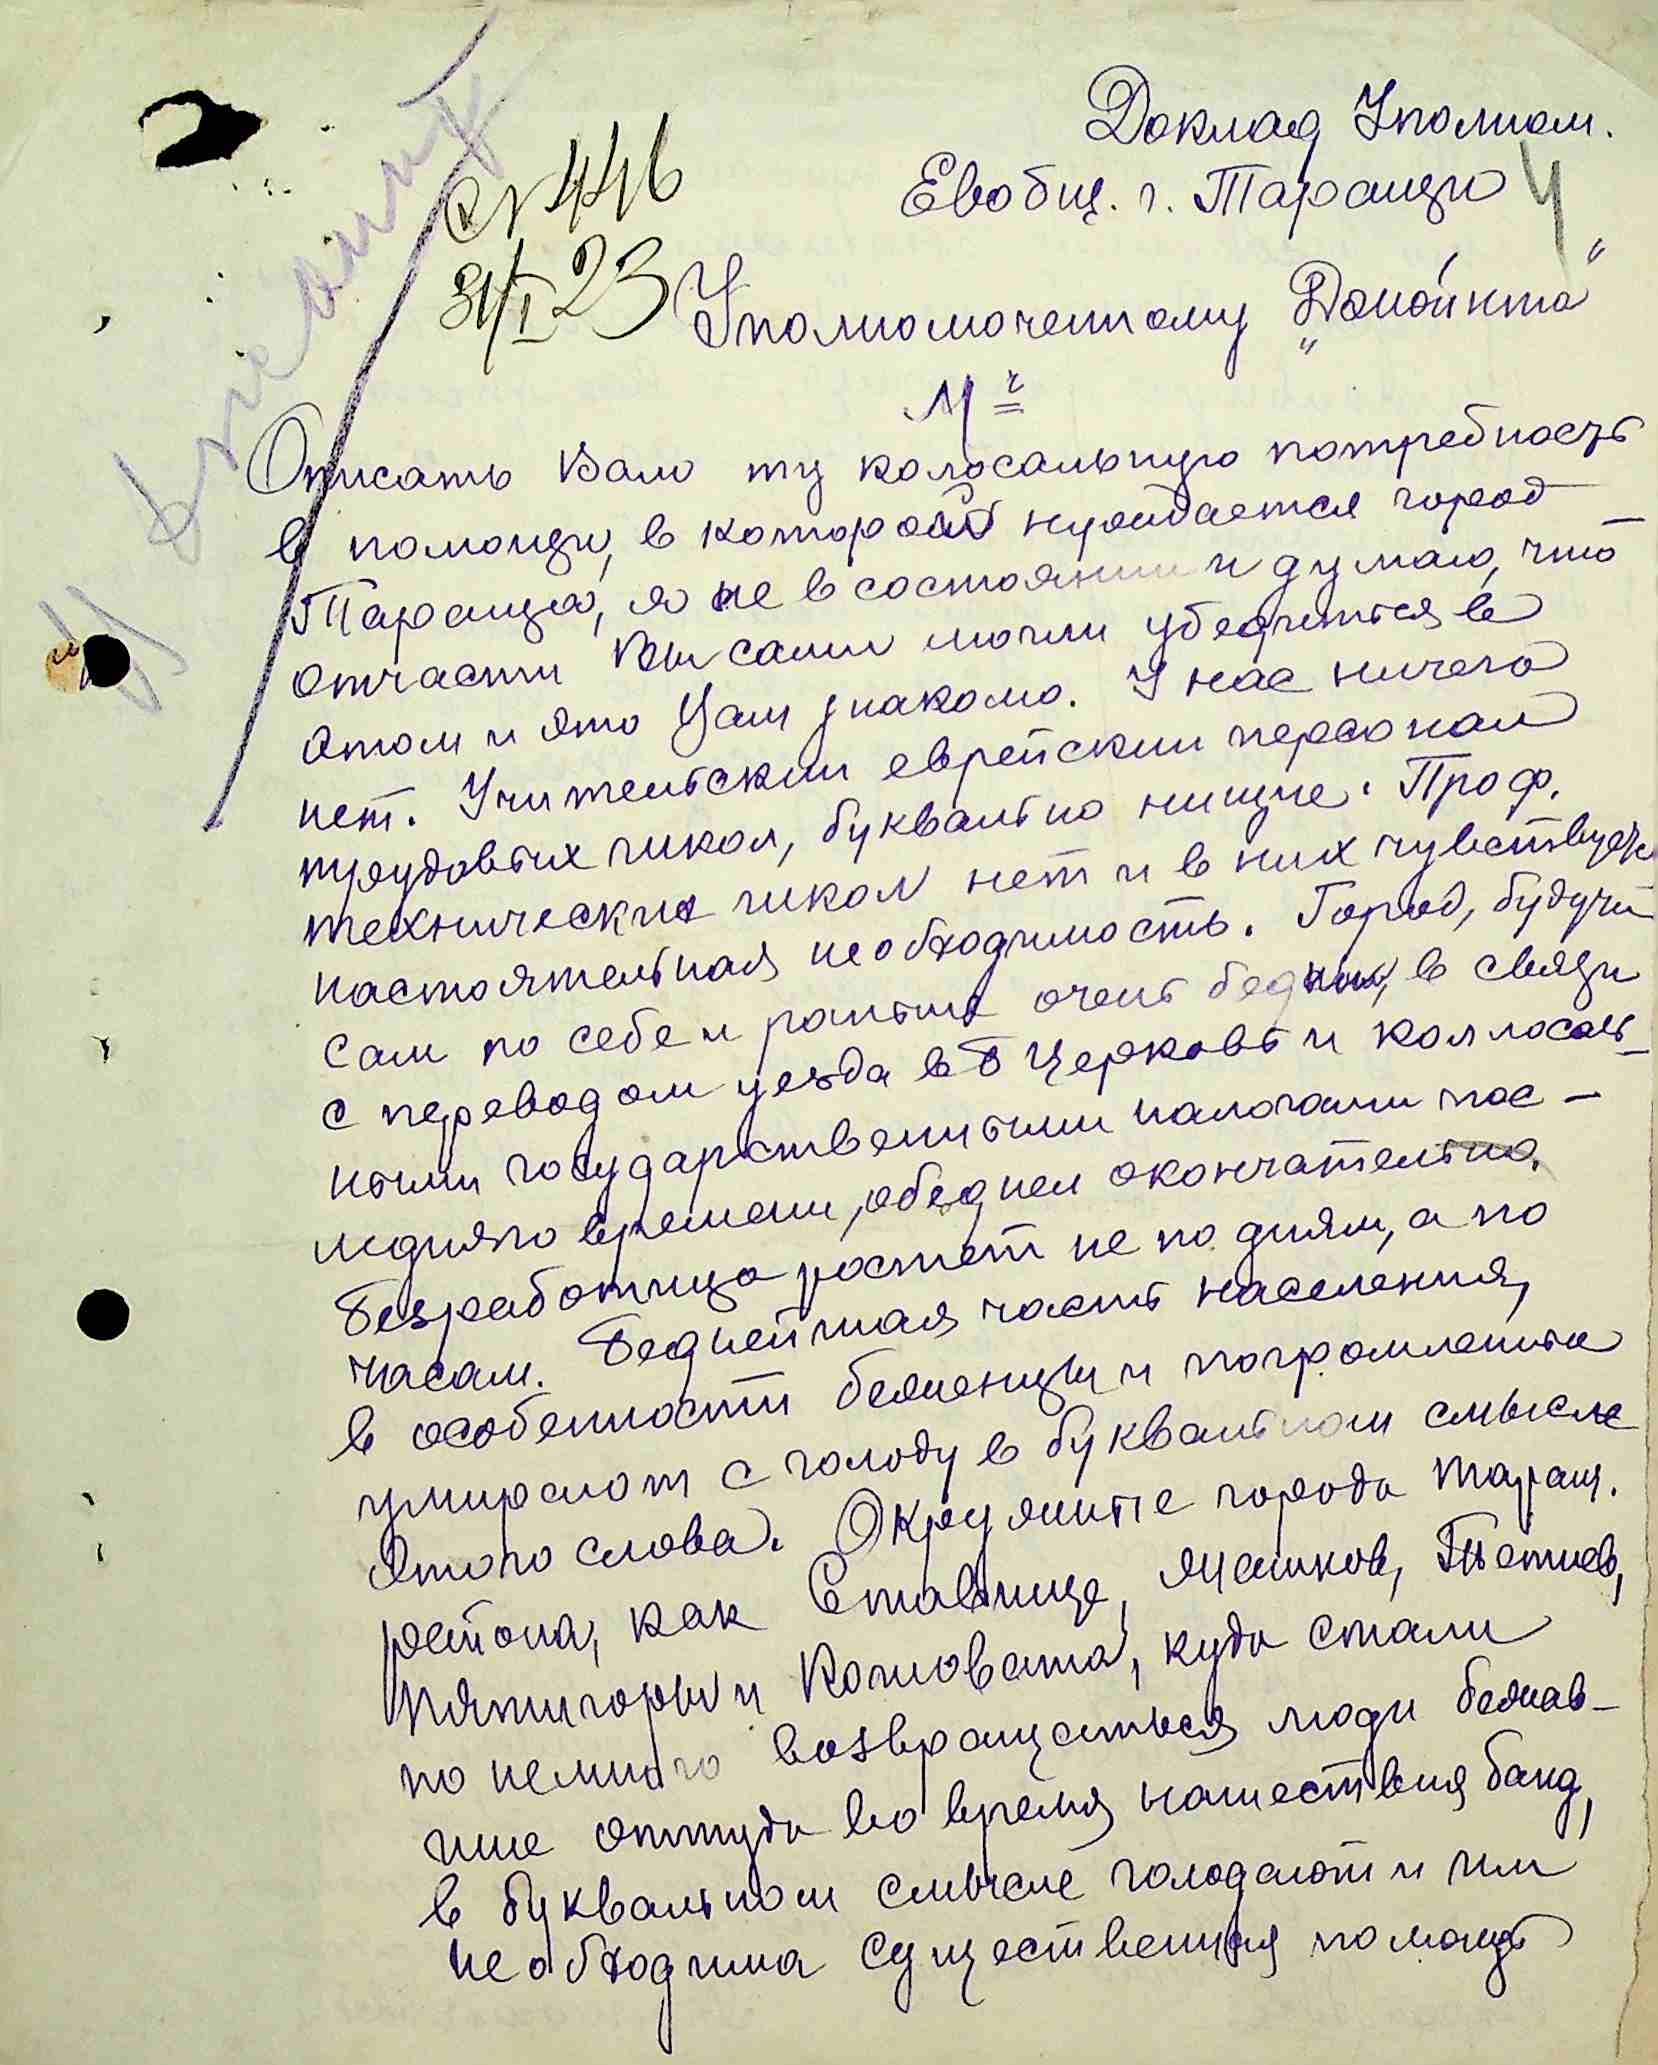 Доклад Уполном.
Евобщ. г. Таращи
4
№ 446
31/I 23
Уполномоченному "Джойнта"
Описать Вам ту колосальную потребность
в помощи, в которой нуждается город
Тараща, я не в состоянии и думаю, что
отчасти Вы сами могли убедиться в
этом и это Вам знакомо. У нас ничего
нет. Учительский еврейский персонал
трудовых школ, буквально нищие. Проф.
технических школ нет и в них чувствуется
настоятельная необходимость. Город, будучи
сам по себе и раньше очень бедным, в связи
с переводом уезда в Б Церковь и коллосаль-
ными государственными налогами пос-
леднего времени, обеднел окончательно.
Безработица ростет не по дням, а по
часам. Беднейшая часть населения,
в особенности беженцы и погромленные
умирают с голоду в буквальном смысле
этого слова. Окружные города Таращ.
района, как Ставище, Жашков, Тетиев,
Пятигоры и Кошовата, куда стали
по немного возвращаться люди бежав-
шие оттуда во время нашествия банд,
в буквальном смысле голодают и им
необходима существенная помощь